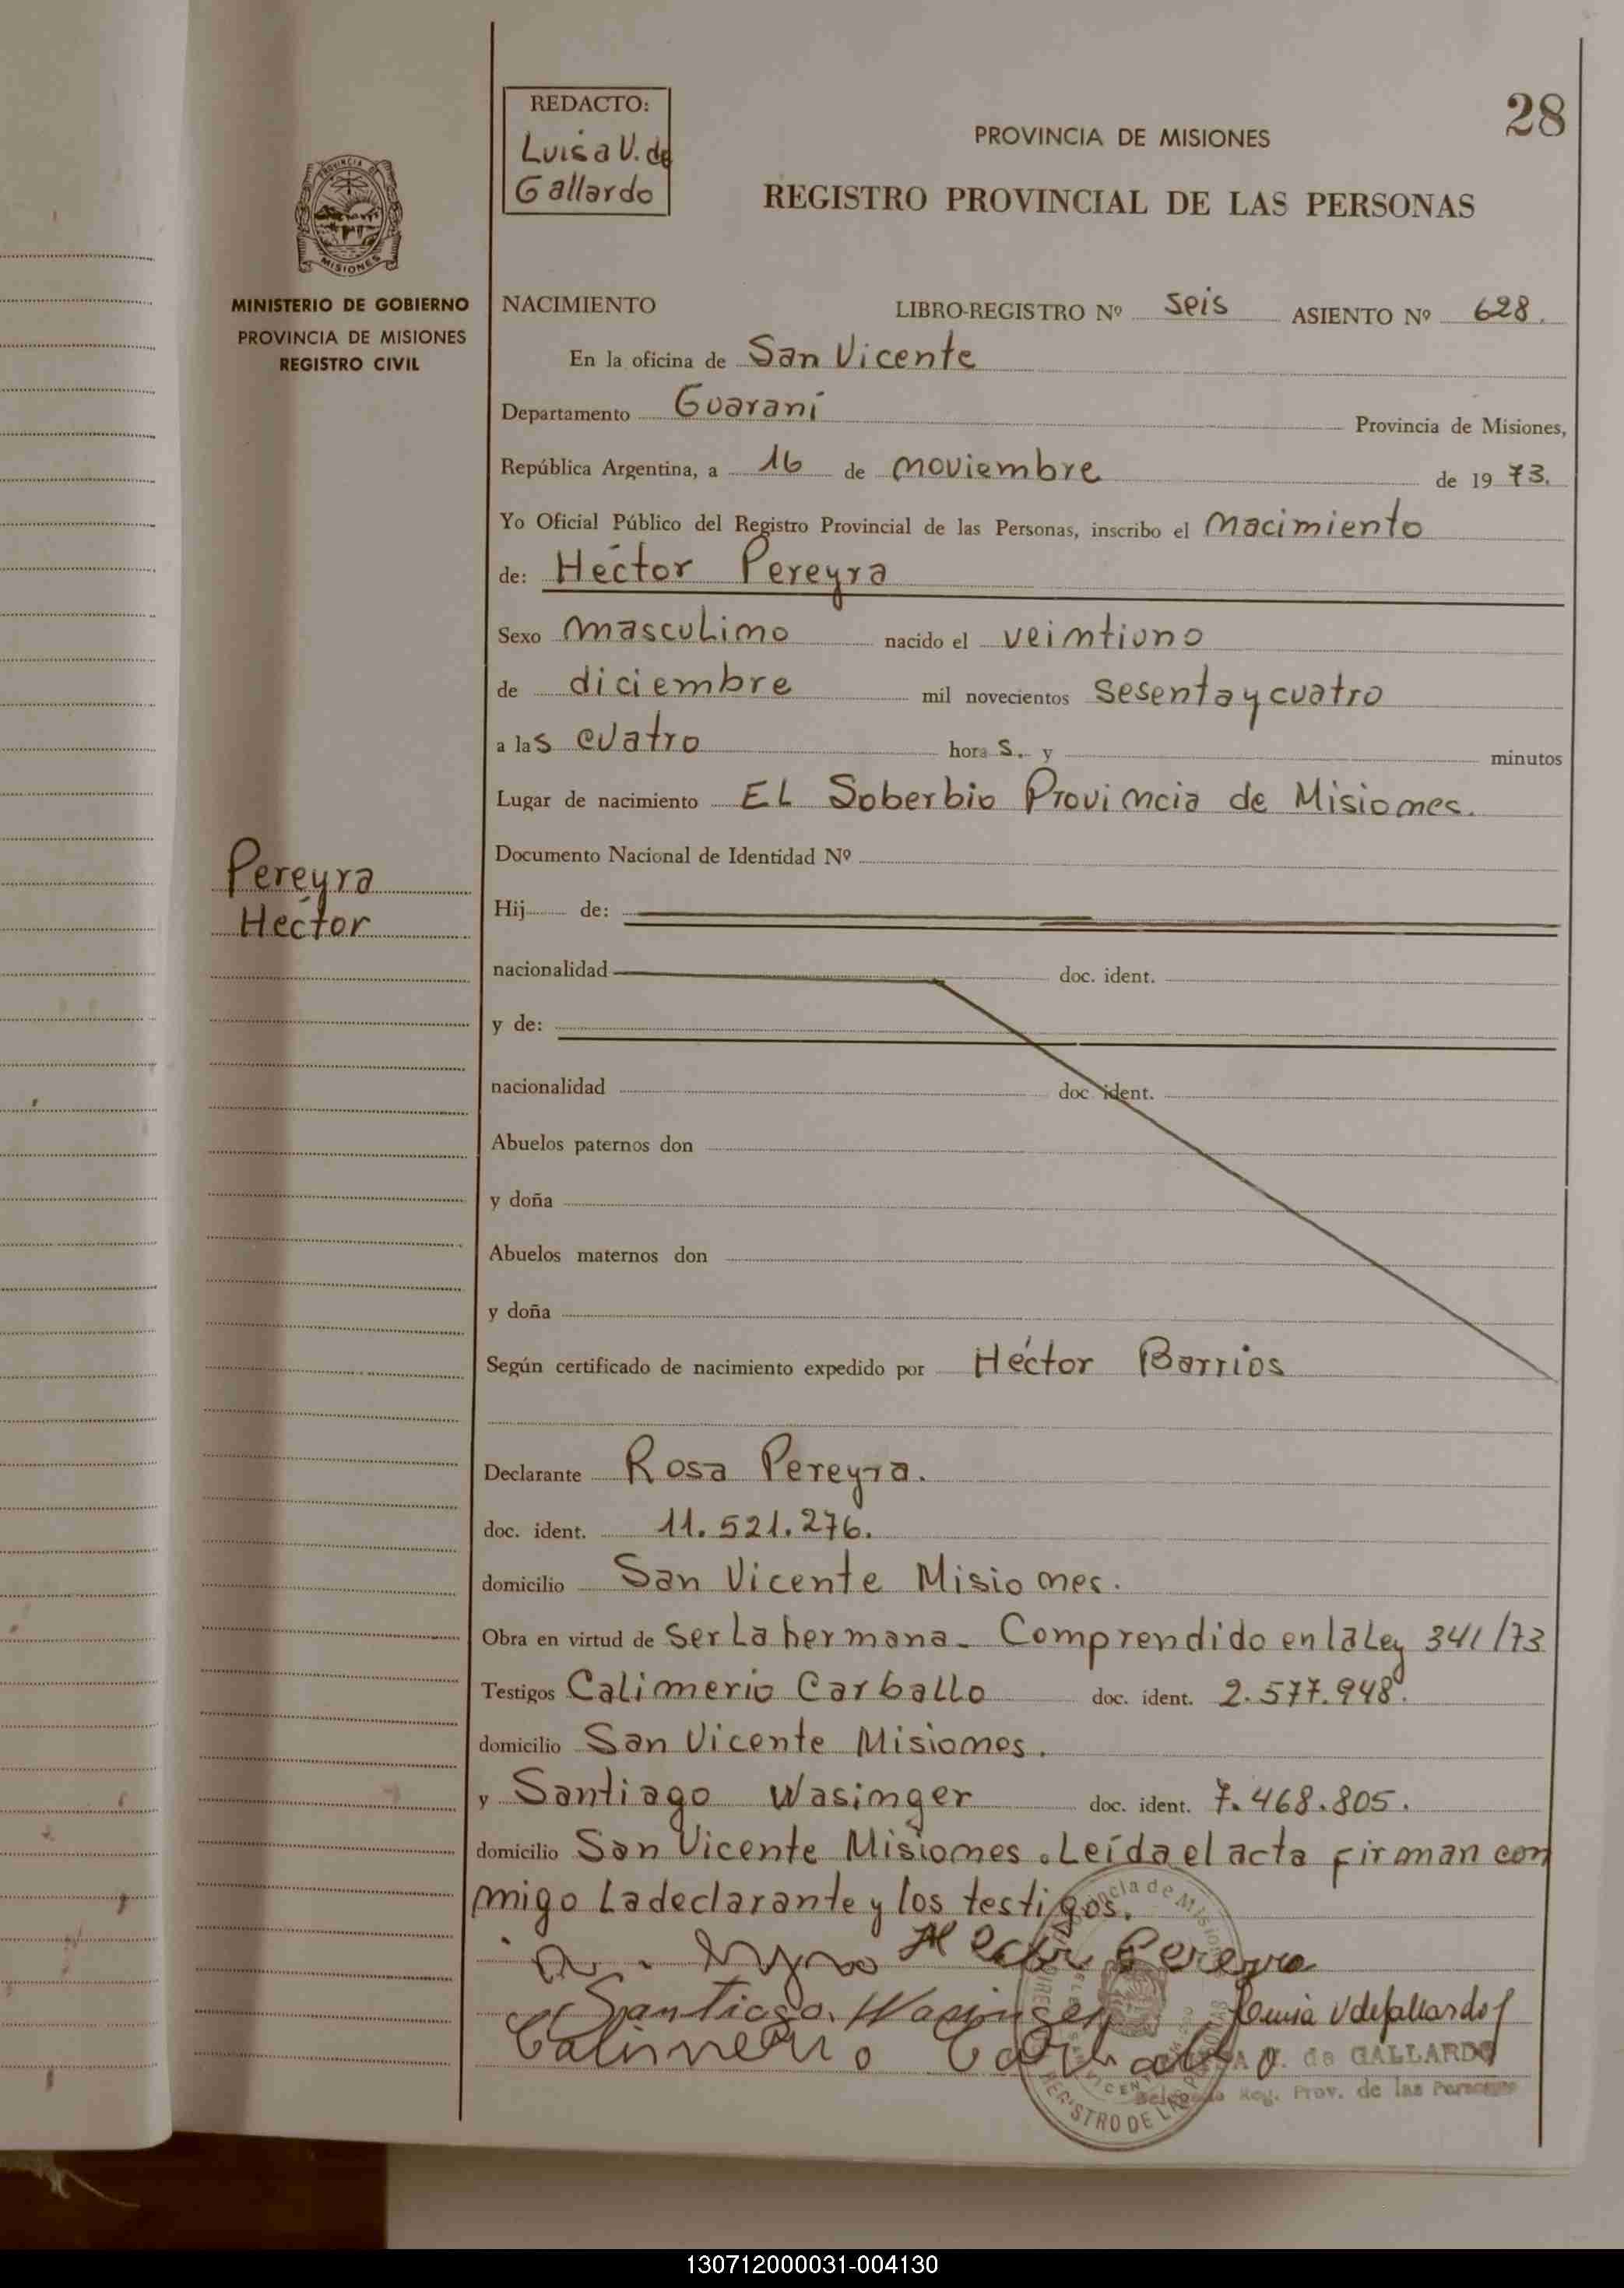 28
REDACTO:
Luisa V. de
Gallardo
PROVINCIA DE MISIONES
REGISTRO PROVINCIAL DE LAS PERSONAS
PROVINCIA DE
MISIONES
MINISTERIO DE GOBIERNO
PROVINCIA DE MISIONES
REGISTRO CIVIL
NACIMIENTO LIBRO-REGISTRO Nº seis ASIENTO Nº 628.
En la oficina de San Vicente
Departamento Guaraní Provincia de Misiones,
República Argentina, a 16 de noviembre de 1973.
Yo Oficial Público del Registro Provincial de las Personas, inscribo el nacimiento
de: Héctor Pereyra
Sexo masculino nacido el veintiuno
de diciembre mil novecientos sesenta y cuatro
a las cuatro horas. y minutos
Lugar de nacimiento El Soberbio Provincia de Misiones.
Documento Nacional de Identidad Nº
Pereyra
Héctor
Hij de:
nacionalidad doc. ident.
y de:
nacionalidad doc. ident.
Abuelos paternos don
y doña
Abuelos maternos don
y doña
Según certificado de nacimiento expedido por Héctor Barrios
Declarante Rosa Pereyra.
doc. ident. 11.521.276.
domicilio San Vicente Misiones.
Obra en virtud de ser la hermana. Comprendido en la Ley 341/73
Testigos Calimerio Carballo doc. ident. 2.577.948.
domicilio San Vicente Misiones.
y Santiago Wasinger doc. ident. 7.468.805.
domicilio San Vicente Misiones. Leída el acta firman con
migo la declarante y los testigos.
Hector Pereyra
Santiago. Wasinger Luisa V de Gallardo
Calimerio Carballo
V. de GALLARDO
Delegada Reg. Prov. de las Personas
REGISTRO DE LAS PERSONAS
130712000031-004130